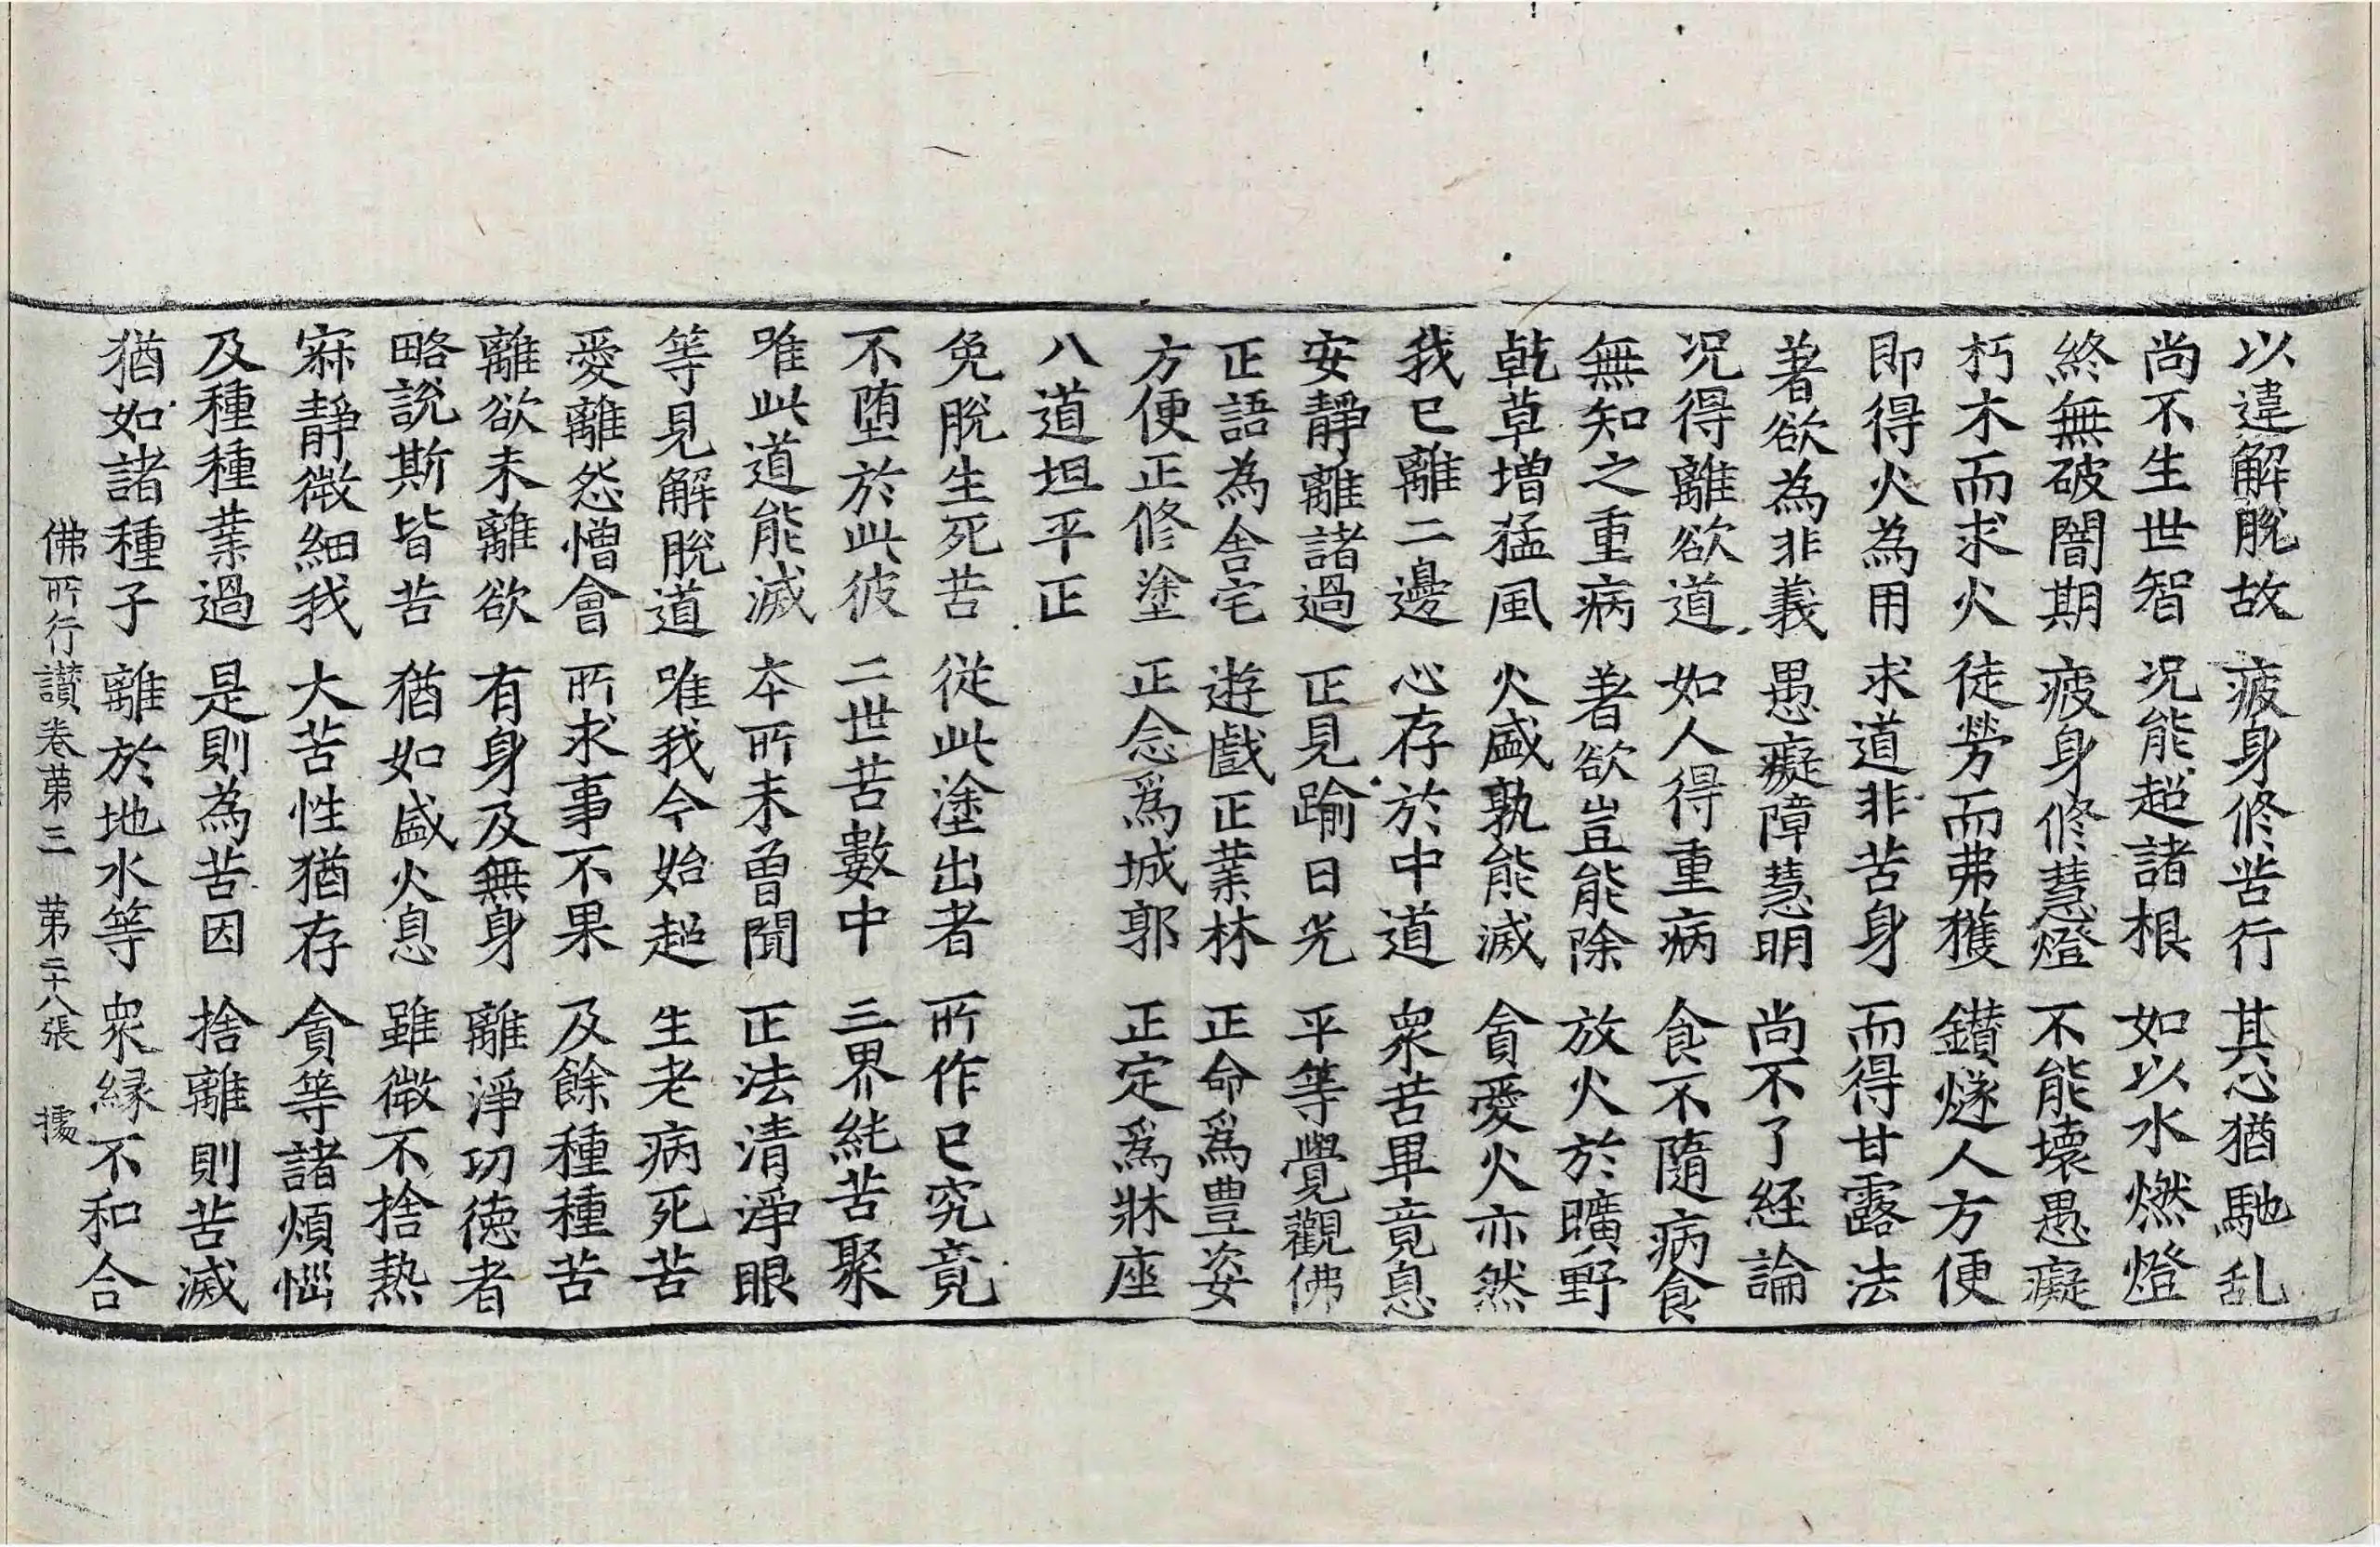 以違解脫故 疲身修苦行 其心猶馳乱
尚不生世智 况能超諸根 如以水燃燈
終無破闇期 疲身修慧燈 不能壞愚癡
朽木而求火 徒勞而弗獲 鑚燧人方便
即得火為用 求道非苦身 而得甘露法
著欲為非義 愚癡障慧明 尚不了経論
况得離欲道 如人得重病 食不隨病食
無知之重病 著欲豈能除 放火於曠野
乾草增猛風 火盛孰能滅 貪愛火亦然
我已離二邊 心存於中道 衆苦畢竟息
安靜離諸過 正見踰日光 平等覺觀佛
正語為舍宅 遊戲正業林 正命爲豊姿
方便正修塗 正念爲城郭 正定爲牀座
八道坦平正
免脫生死苦 從此塗出者 所作已究竟
不墮於此彼 二世苦數中 三界純苦聚
唯此道能滅 本所未曾聞 正法清淨眼
等見解脫道 唯我今始超 生老病死苦
愛離怨憎會 所求事不果 及餘種種苦
離欲未離欲 有身及無身 離淨功徳者
略說斯皆苦 猶如盛火息 雖微不捨熱
寂靜微細我 大苦性猶存 貪等諸煩惱
及種種業過 是則為苦因 捨離則苦滅
猶如諸種子 離於地水等 衆縁不和合
佛所行讃卷第三 第二十八張 據